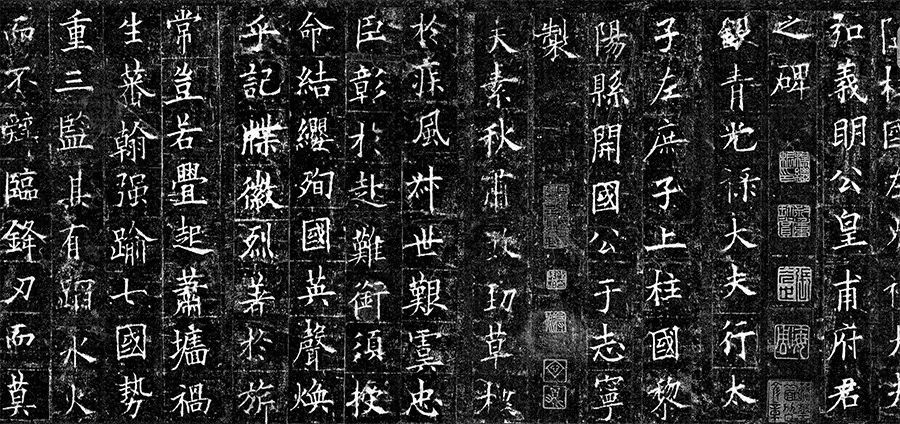 柱國左光祿大夫
弘義明公皇甫府君
之碑
銀青光祿大夫行太
子左庶子上柱國黎
陽縣開國公于志寧
製
夫素秋肅煞勁草標
於疾風叔世艱虞忠
臣彰於赴難銜須授
命結纓殉國英聲煥
乎記牒徽烈著於旂
常豈若疊起蕭墻禍
生蕃翰强踰七國勢
重三監其有蹈水火
而不辭臨鋒刃而莫